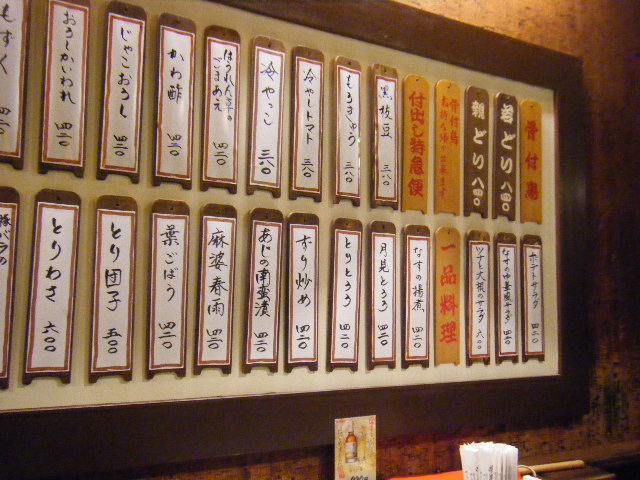 骨付鳥
若どり 八四〇
親どり 八四〇
骨付鳥
お持ち帰り出来ます
付出し特急便
黒枝豆 三八〇
もろきゅう 三八〇
冷やしトマト 三八〇
冷やっこ 三八〇
ほうれん草の
ごまあえ 四二〇
かわ酢 四二〇
じゃこおろし 四二〇
おろしかいわれ 四二〇
もずく
ポテトサラダ 四二〇
なすの中華風サラダ 四二〇
ツナと大根のサラダ 六〇〇
一品料理
なすの揚煮 四二〇
月見とろろ 四二〇
とりとろろ 四二〇
ずり炒め 四二〇
あじの南蛮漬 四二〇
麻婆春雨 四二〇
葉ごぼう 四二〇
とり団子 五〇〇
とりわさ 六〇〇
豚バラの